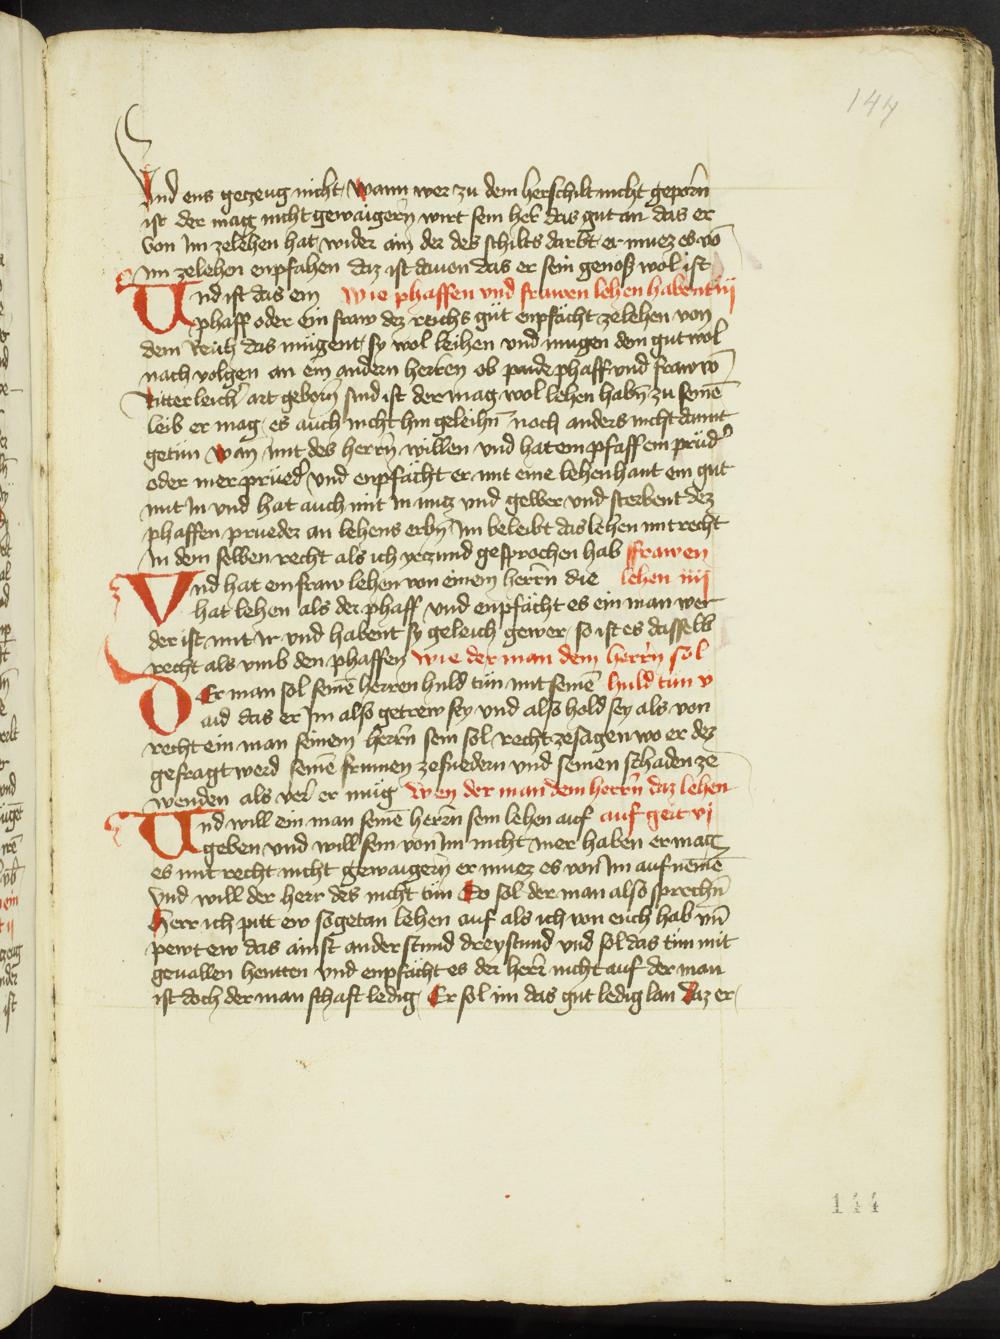 144
Vnd ens gezeug nicht Wann wer zu dem herschilt nicht geporn
ist der mag nicht gewaigern wirt sein her das gut an das er
von Im zelehen hat wider ain der des schilts darbt er muez es vō
im zelehen enpfahen daz ist dauon das er sein genoß wol ist
Vnd ist das ein Wie phaffen vnd frawen lehen habent iij
phaff oder ein fraw dez reichs gůt enpfächt zelehen von
dem Reich das mügent sy wol leihen vnd mugen dem gut wol
nach volgen an ein andern herren ob paide phaff vnd fraw vō
Ritterleicher art geborn sind ist der mag wol lehen habn zu seinē
leib er mag es auch nicht hin geleihn noch anders nicht damit
getůn wan mit des herrn willen vnd hat em pfaff ein průd
oder mer průed vnd enpfächt er mit eine lehenhant ein gut
mit In vnd hat auch mit In nuz vnd gewer vnd sterbent dez
phaffen prueder an lehens erbn Im beleibt das lehen mit recht
In dem selben recht als ich yeczund gesprochen hab ffrawen
Vnd hat ein fraw lehen von einem herrn die lehen iiij
hat lehen als der phaff vnd enpfächt es ein man wer
der ist mit Ir vnd habent sy geleich gewer so ist es dasselb
recht als vmb den phaffen wie der man dem herrn sol
Der man sol seinē herren huld tůn mit seinē huld tůn v
aid das er Im also getrew sey vnd also hold sey als von
recht ein man seinem herrn sein sol recht zesagen wo er dez
gefragt werd seinē frumen zefuedern vnd seinen schaden ze
wenden als verr er mug Wen der man dem herrn daz lehen
Vnd will ein man seinē herrn sein lehen auf auf geit vj
geben vnd will sein von Im nicht mer haben er mag
es mit recht nicht gewaigern er muez es von Im auf nemē
vnd will der herr des nicht tůn So sol der man also sprechn
Herr ich pitt ew sogetan lehen auf als ich von euch hab vnd
pewt ew das ainst ander stund dreystund vnd sol das tůn mit
geuallen henten vnd enpfächt es der herr nicht auf der man
ist doch der man schaft ledig Er sol im das gut ledig lan Daz er
144